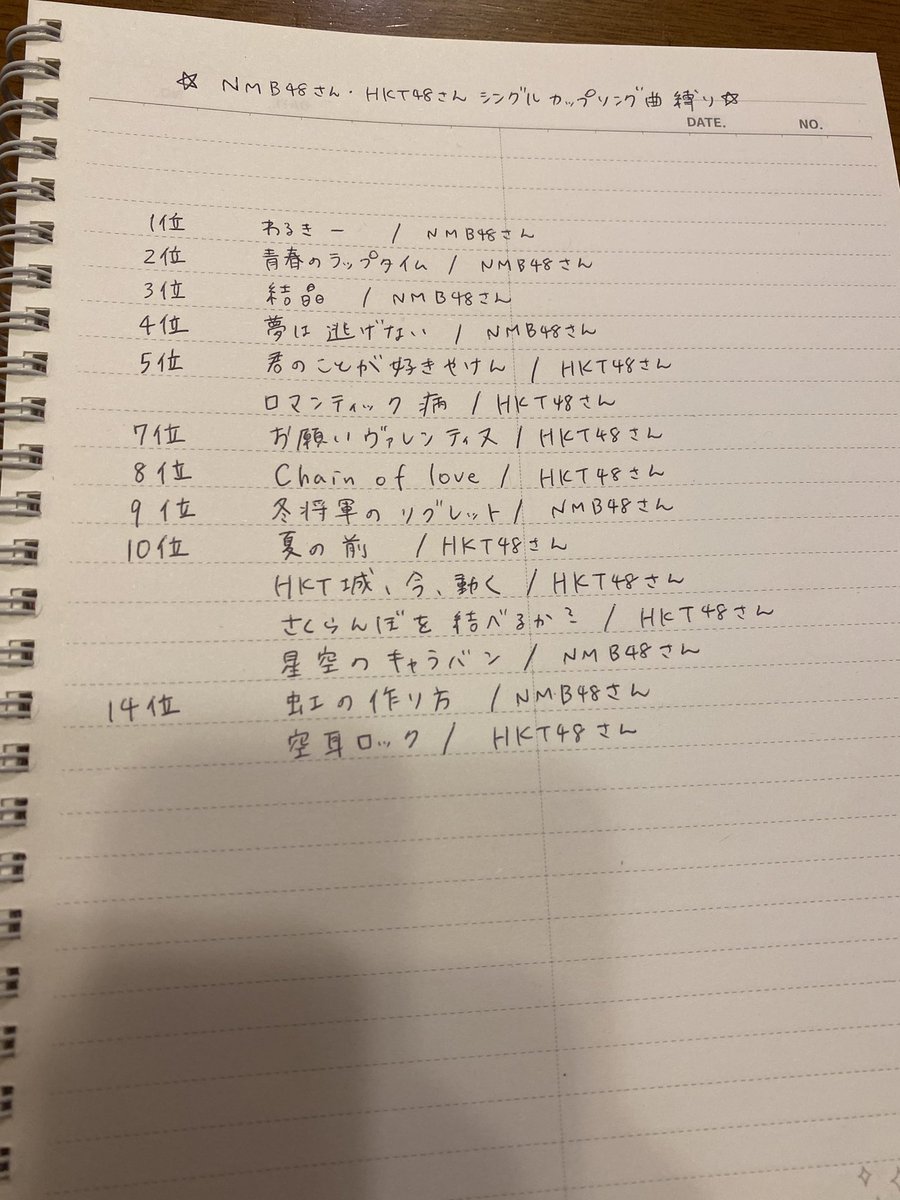 ☆ NMB48さん・HKT48さん シングルカップリング曲縛り☆
DATE. NO.
1位 わるきー / NMB48さん
2位 青春のラップタイム / NMB48さん
3位 結晶 / NMB48さん
4位 夢は逃げない / NMB48さん
5位 君のことが好きやけん / HKT48さん
ロマンティック病 / HKT48さん
7位 お願いヴァレンティヌ / HKT48さん
8位 Chain of love / HKT48さん
9位 冬将軍のリグレット / NMB48さん
10位 夏の前 / HKT48さん
HKT城、今、動く / HKT48さん
さくらんぼを結べるか? / HKT48さん
星空のキャラバン / NMB48さん
14位 虹の作り方 / NMB48さん
空耳ロック / HKT48さん